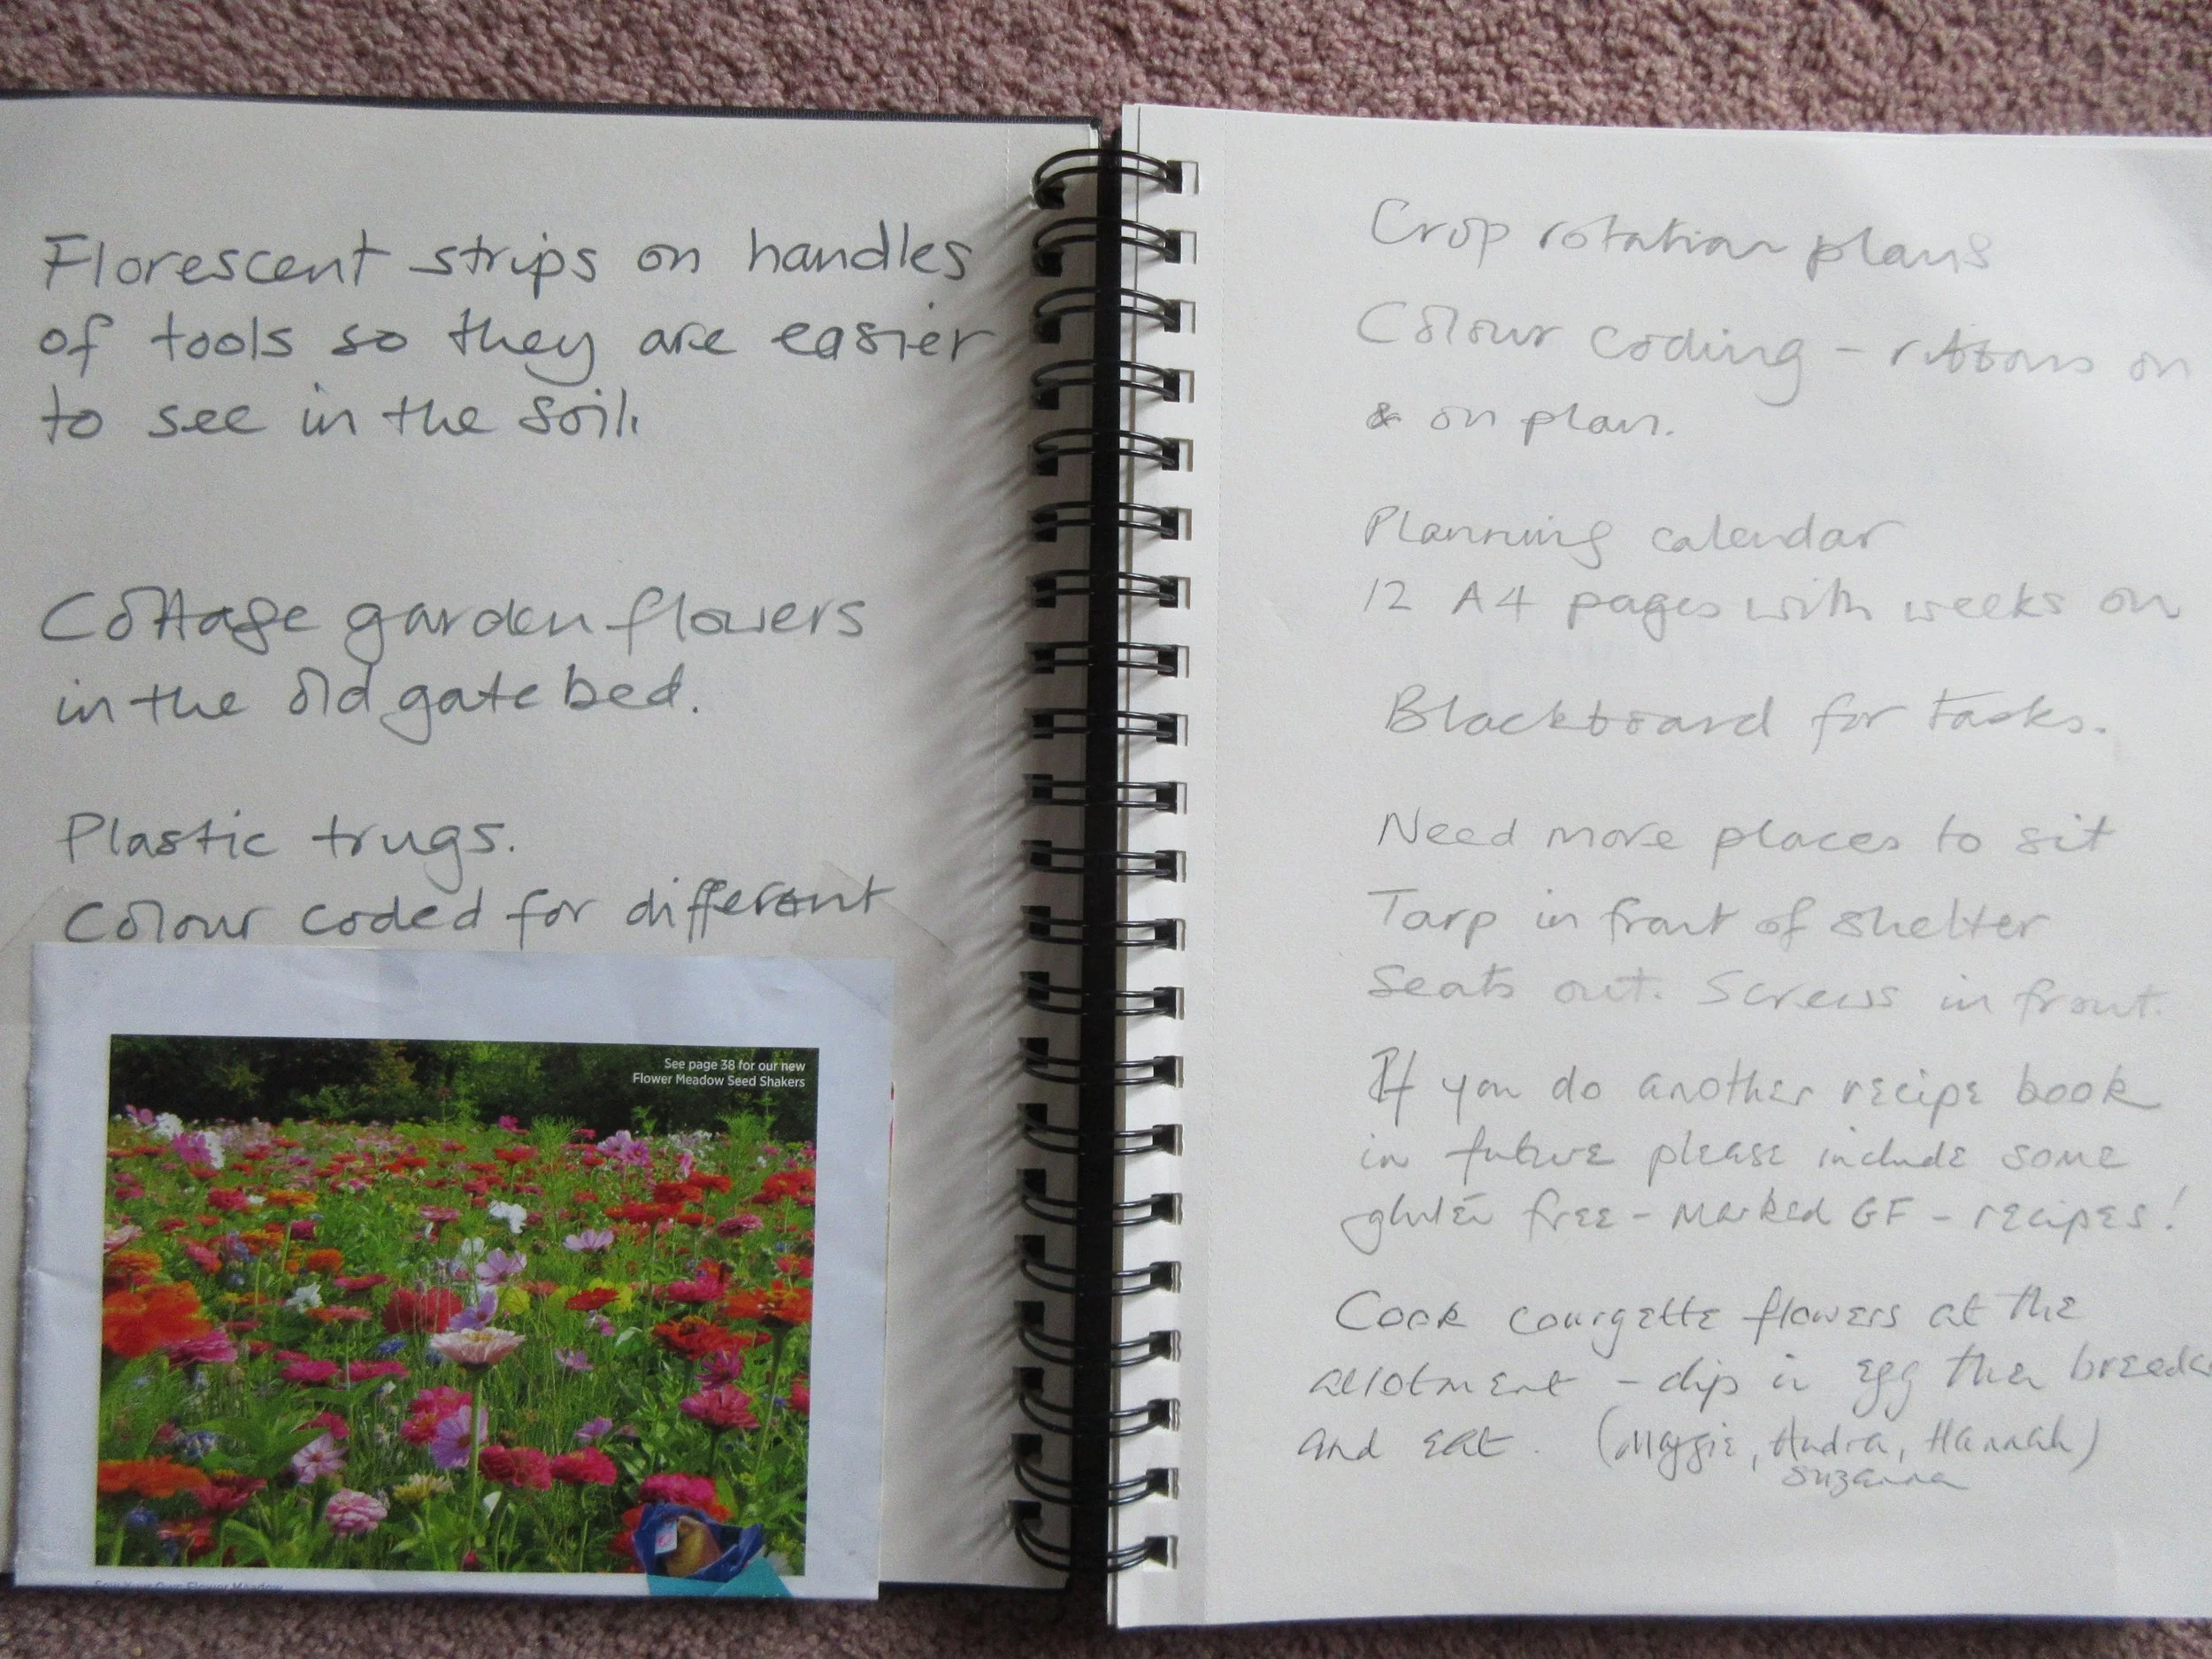 Florescent strips on handles
of tools so they are easier
to see in the soil.
Cottage garden flowers
in the old gate bed.
Plastic trugs.
Colour coded for different
See page 38 for our new
Flower Meadow Seed Shakers
Crop rotation plans
Colour coding - ribbons on
& on plan.
Planning calendar
12 A4 pages with weeks on
Blackboard for tasks.
Need more places to sit
Tarp in front of shelter
Seats out. Screws in front.
If you do another recipe book
in future please include some
gluten free - marked GF - recipes!
Cook courgette flowers at the
allotment - dip in egg then
and eat. (Maggie, Andra, Hannah)
Suzanna